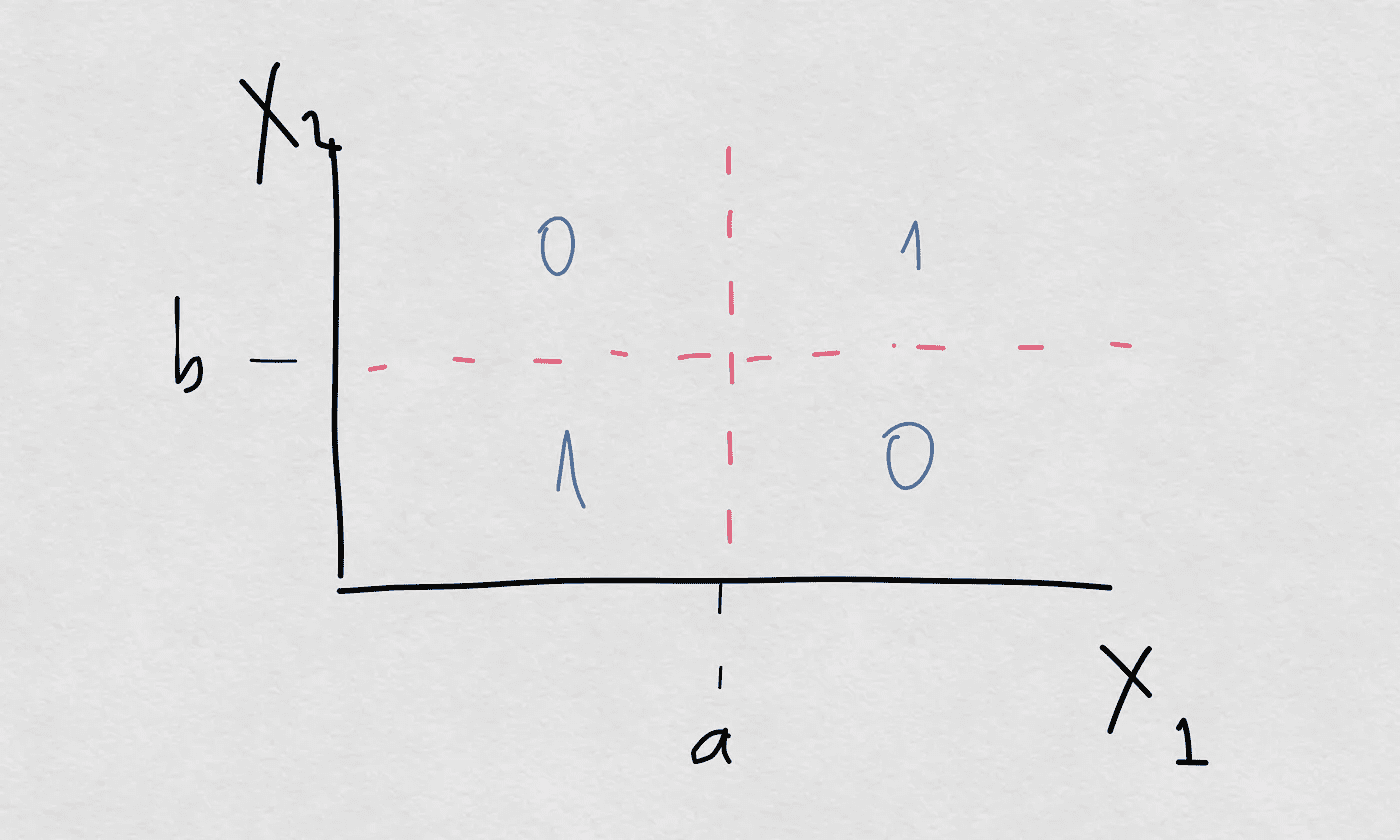 X2
0 1
b
1 0
a
X1